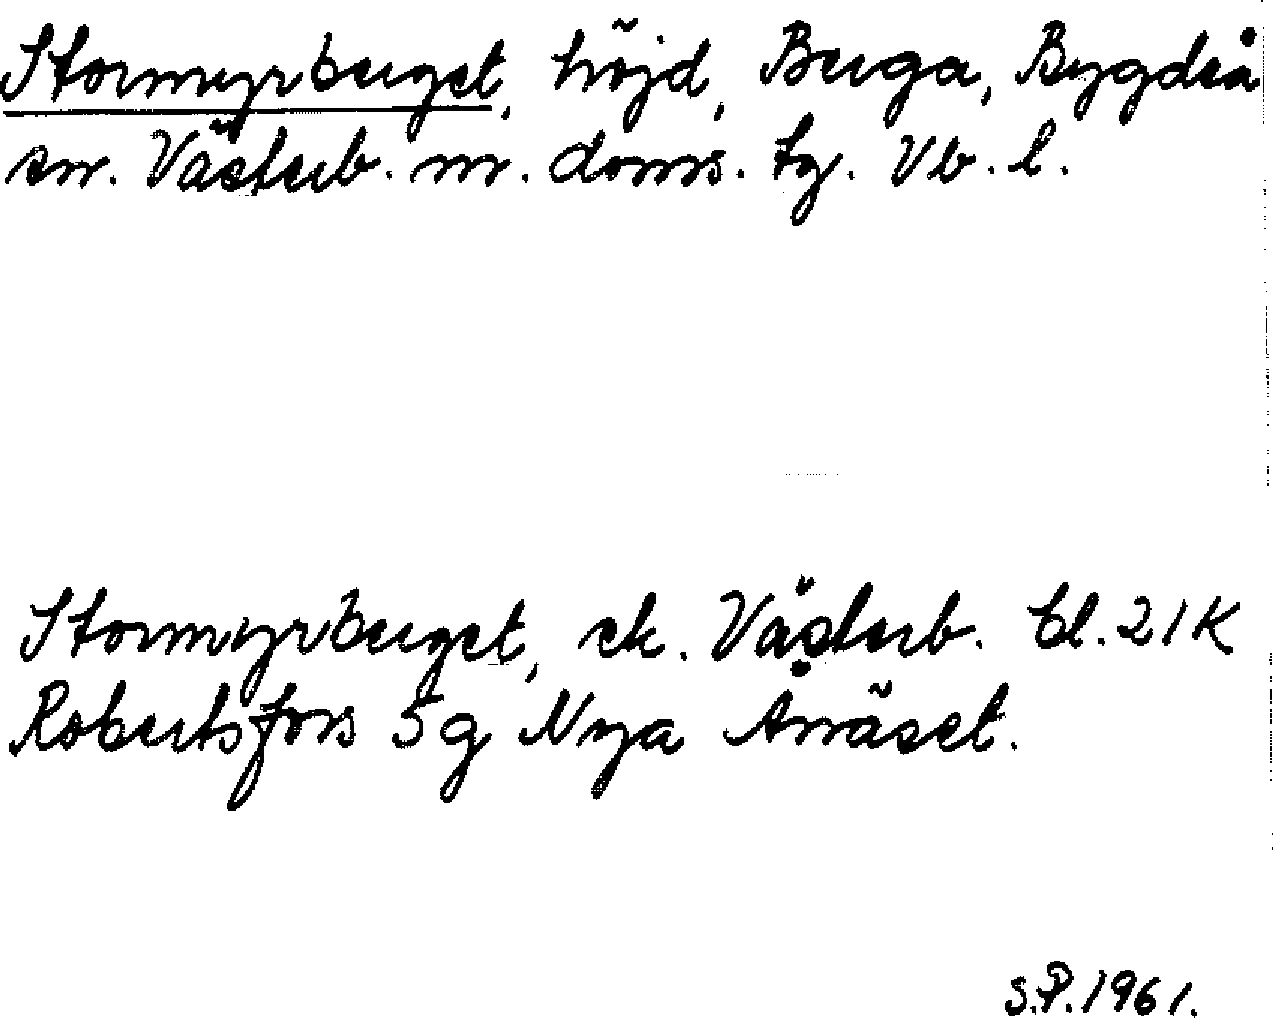 Stormyrberget, höjd, Berga, Bygdeå
sn. Västerb. n. doms. tg. Vb. l.
Stormyrberget, ek. Västerb. bl. 21K
Robertsfors 5g Nya Ånäset.
S.P. 1961.